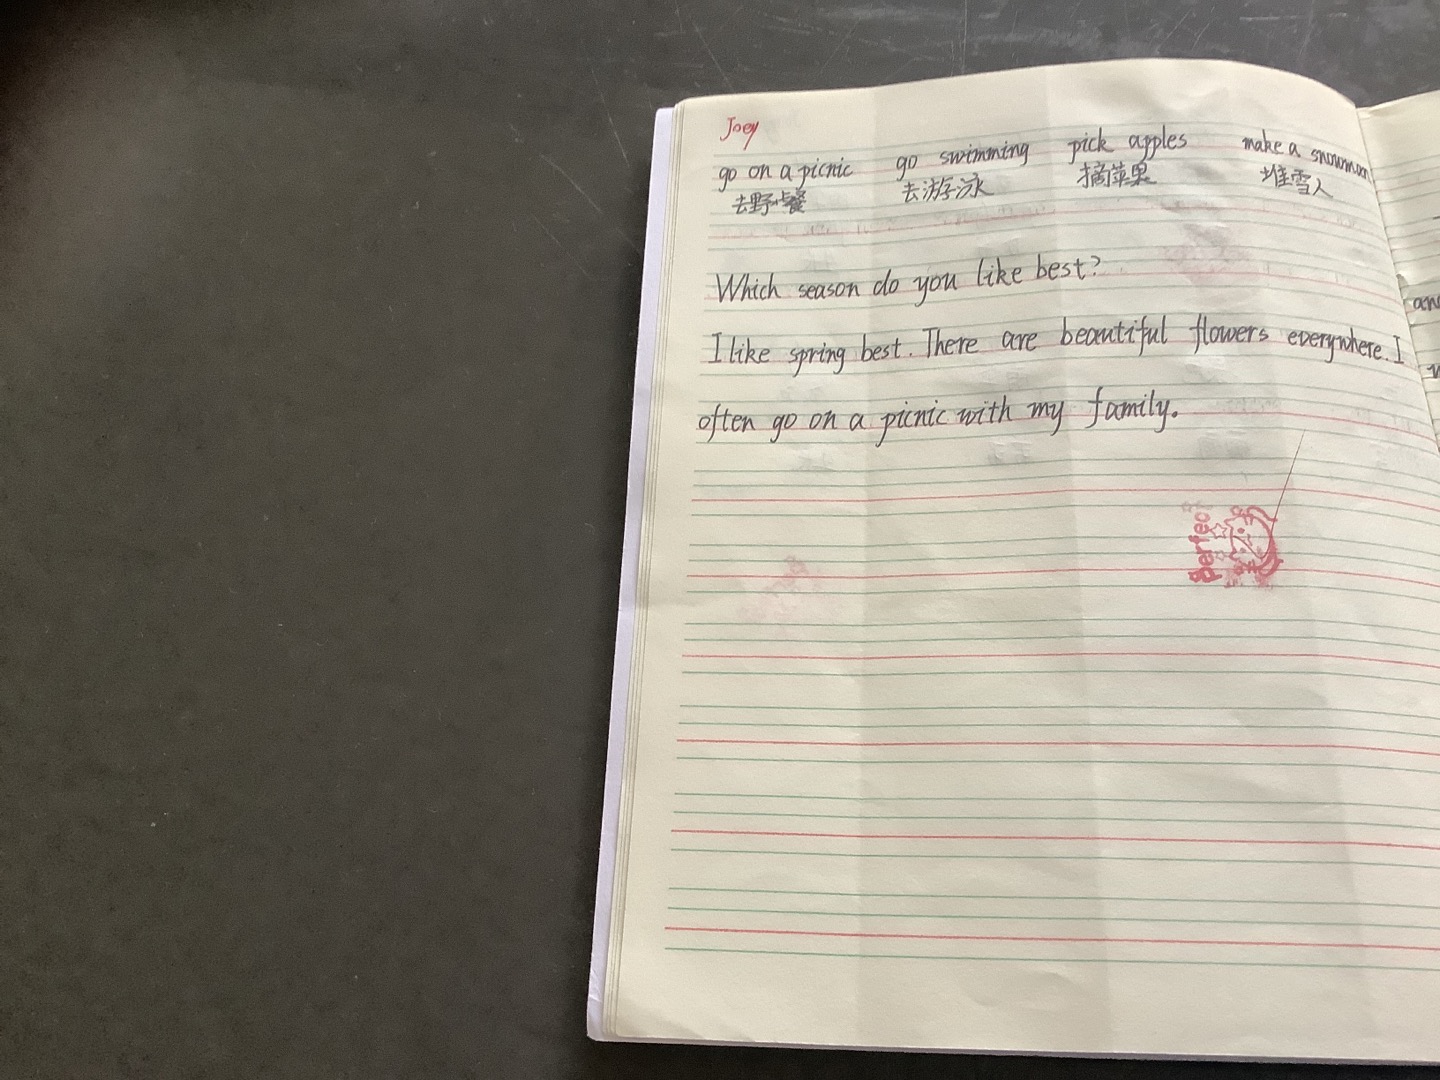 Joey
go on a picnic go swimming pick apples make a snowman
去野餐 去游泳 摘苹果 堆雪人
Which season do you like best?
I like spring best. There are beautiful flowers everywhere. I
often go on a picnic with my family.
perfect